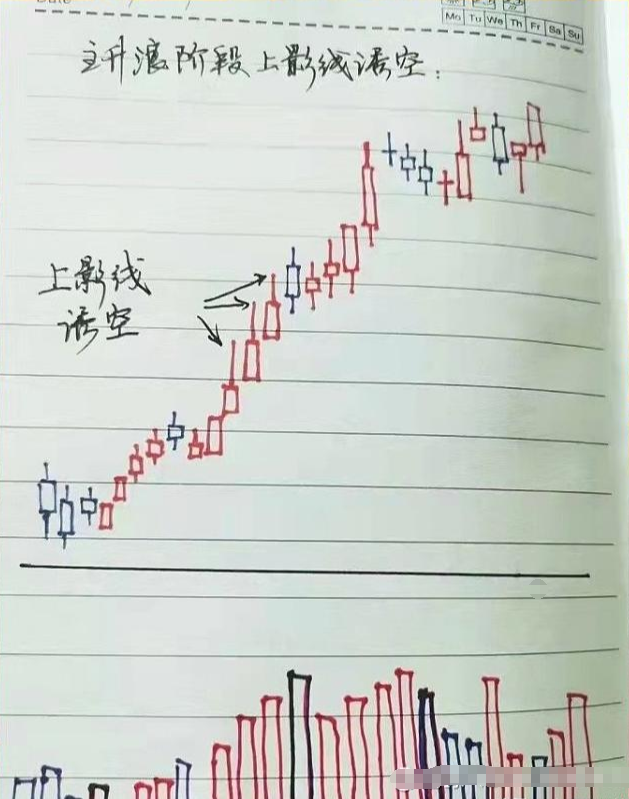 Date / /
Mo Tu We Th Fr Sa Su
主升浪阶段上影线诱空:
上影线
诱空